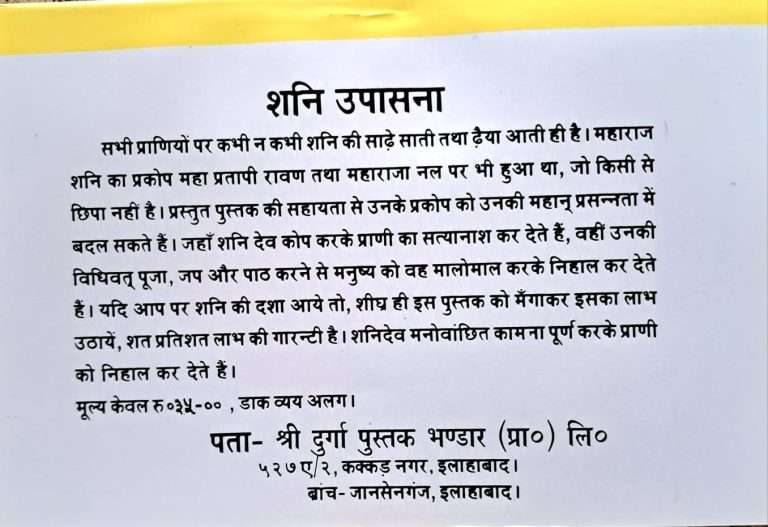 शनि उपासना
सभी प्राणियों पर कभी न कभी शनि की साढ़े साती तथा ढ़ैया आती ही है। महाराज
शनि का प्रकोप महा प्रतापी रावण तथा महाराजा नल पर भी हुआ था, जो किसी से
छिपा नहीं है। प्रस्तुत पुस्तक की सहायता से उनके प्रकोप को उनकी महान् प्रसन्नता में
बदल सकते हैं। जहाँ शनि देव कोप करके प्राणी का सत्यानाश कर देते हैं, वहीं उनकी
विधिवत् पूजा, जप और पाठ करने से मनुष्य को वह मालोमाल करके निहाल कर देते
हैं। यदि आप पर शनि की दशा आये तो, शीघ्र ही इस पुस्तक को मँगाकर इसका लाभ
उठायें, शत प्रतिशत लाभ की गारन्टी है। शनिदेव मनोवांछित कामना पूर्ण करके प्राणी
को निहाल कर देते हैं।
मूल्य केवल रु०३५-०० , डाक व्यय अलग।
पता- श्री दुर्गा पुस्तक भण्डार (प्रा०) लि०
५२७ए/२, कक्कड़ नगर, इलाहाबाद।
ब्रांच- जानसेनगंज, इलाहाबाद।